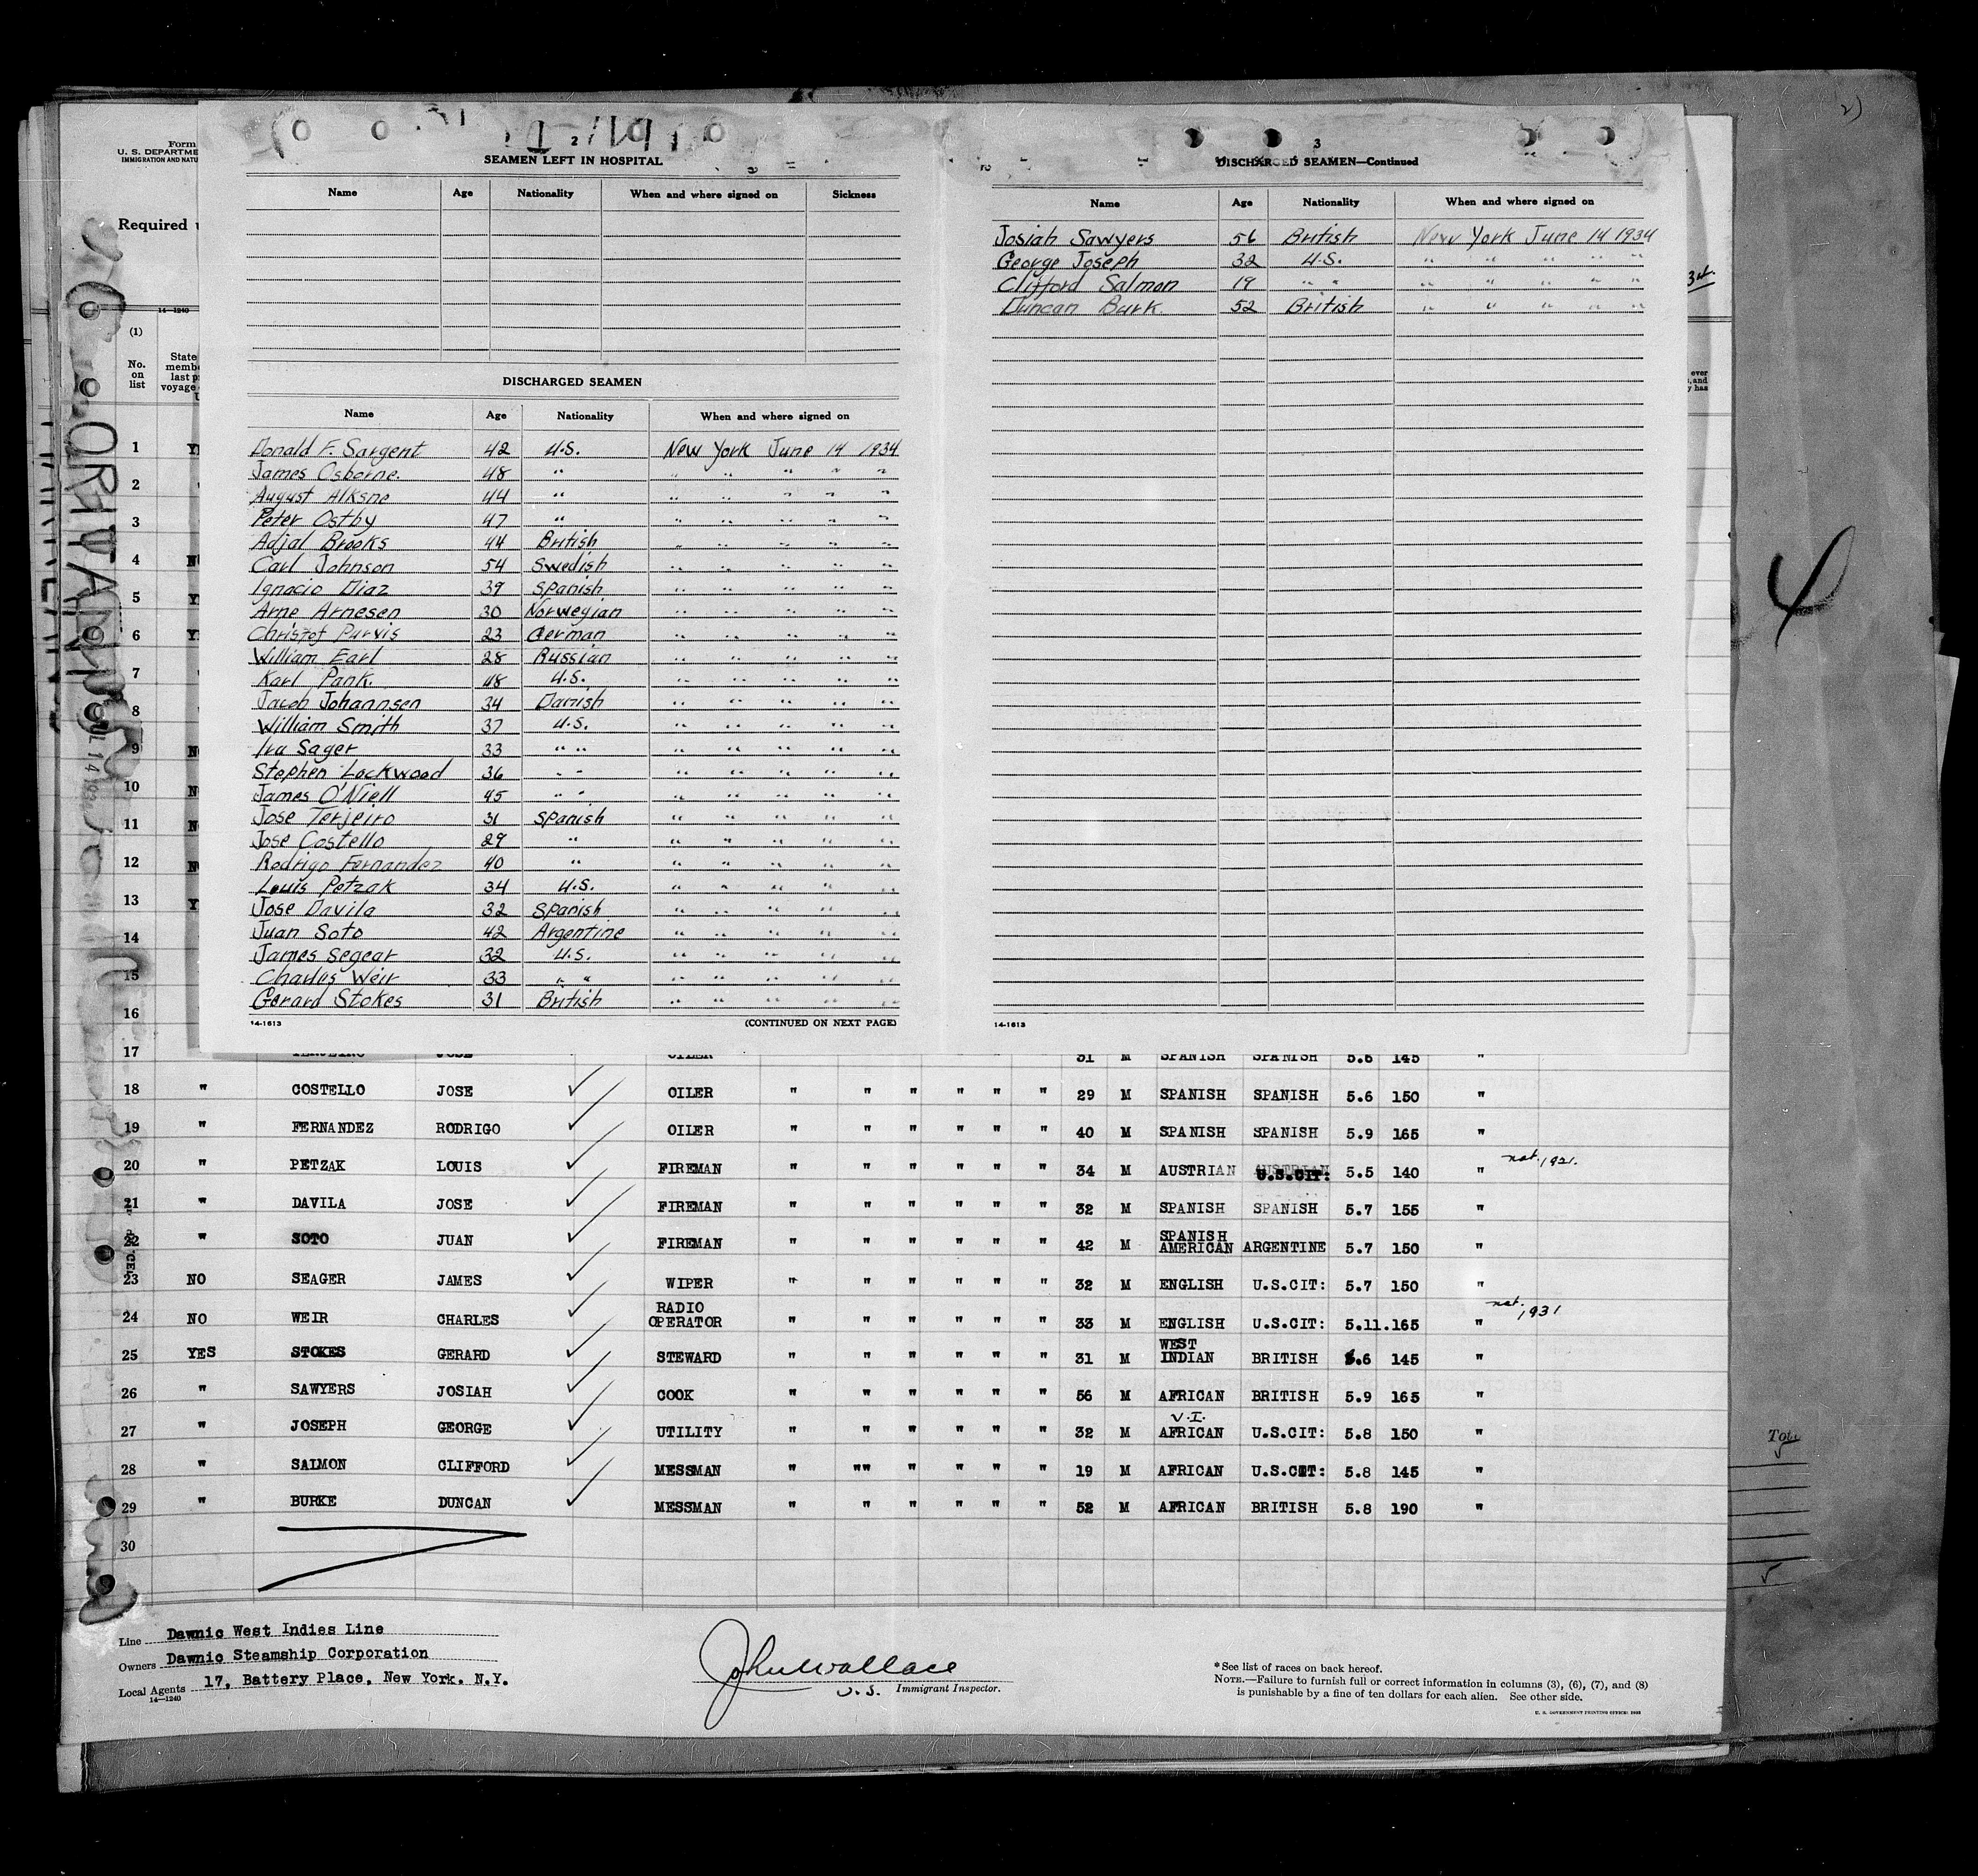 2
SEAMEN LEFT IN HOSPITAL
Name Age Nationality When and where signed on Sickness
DISCHARGED SEAMEN
Name Age Nationality When and where signed on
Donald F. Sargent 42 U.S. New York June 14 1934
James Osborne. 48 " " " " " "
August Alksne 44 " " " " " "
Peter Ostby 47 " " " " " "
Adjal Brooks 44 British " " " " "
Carl Johnson 54 Swedish " " " " "
Ignacio Diaz 39 Spanish " " " " "
Arne Arnesen 30 Norwegian " " " " "
Christof Purvis 23 German " " " " "
William Earl 28 Russian " " " " "
Karl Pank. 48 U.S. " " " " "
Jacob Johannsen 34 Danish " " " " "
William Smith 37 U.S. " " " " "
Ira Sager 33 " " " " " " "
Stephen Lockwood 36 " " " " " " "
James O'Niell 45 " " " " " " "
Jose Terjeiro 31 Spanish " " " " "
Jose Costello 29 " " " " " "
Rodrigo Fernandez 40 " " " " " "
Louis Petzak 34 U.S. " " " " "
Jose Davila 32 Spanish " " " " "
Juan Soto 42 Argentine " " " " "
James Segear 32 U.S. " " " " "
Charles Weir 33 " " " " " " "
Gerard Stokes 31 British " " " " "
14-1613 (CONTINUED ON NEXT PAGE)
3
DISCHARGED SEAMEN—Continued
Name Age Nationality When and where signed on
Josiah Sawyers 56 British New York June 14 1934
George Joseph 32 U.S. " " " " "
Clifford Salmon 19 " " " " " " "
Duncan Burk. 52 British " " " " "
14-1613
Form
U. S. DEPARTME
IMMIGRATION AND NATU
Required
14-1240
(1)
No. on list
State
memb
last p
voyage
1
2
3
4
5
6
7
8
9
10
11
12
13
14
15
16
17 TERJEIRO JOSE OILER " " " " " " 31 M SPANISH SPANISH 5.6 145 "
18 " COSTELLO JOSE OILER " " " " " " 29 M SPANISH SPANISH 5.6 150 "
19 " FERNANDEZ RODRIGO OILER " " " " " " 40 M SPANISH SPANISH 5.9 165 "
20 " PETZAK LOUIS FIREMAN " " " " " " 34 M AUSTRIAN AUSTRIAN U.S.CIT: 5.5 140 " nat. 1921.
21 " DAVILA JOSE FIREMAN " " " " " " 32 M SPANISH SPANISH 5.7 155 "
22 " SOTO JUAN FIREMAN " " " " " " 42 M SPANISH AMERICAN ARGENTINE 5.7 150 "
23 NO SEAGER JAMES WIPER " " " " " " 32 M ENGLISH U.S.CIT: 5.7 150 "
24 NO WEIR CHARLES RADIO OPERATOR " " " " " " 33 M ENGLISH U.S.CIT: 5.11.165 " nat. 1931
25 YES STOKES GERARD STEWARD " " " " " " 31 M WEST INDIAN BRITISH 5.6 145 "
26 " SAWYERS JOSIAH COOK " " " " " " 56 M AFRICAN BRITISH 5.9 165 "
27 " JOSEPH GEORGE UTILITY " " " " " " 32 M V.I. AFRICAN U.S.CIT: 5.8 150 "
28 " SALMON CLIFFORD MESSMAN " "" " " " " 19 M AFRICAN U.S.CIT: 5.8 145 "
29 " BURKE DUNCAN MESSMAN " " " " " " 52 M AFRICAN BRITISH 5.8 190 "
30
Line Dawnic West Indies Line
Owners Dawnic Steamship Corporation
Local Agents 17, Battery Place, New York. N.Y.
14—1240
John Wallace
U.S. Immigrant Inspector.
*See list of races on back hereof.
NOTE.—Failure to furnish full or correct information in columns (3), (6), (7), and (8)
is punishable by a fine of ten dollars for each alien. See other side.
U. S. GOVERNMENT PRINTING OFFICE: 1932